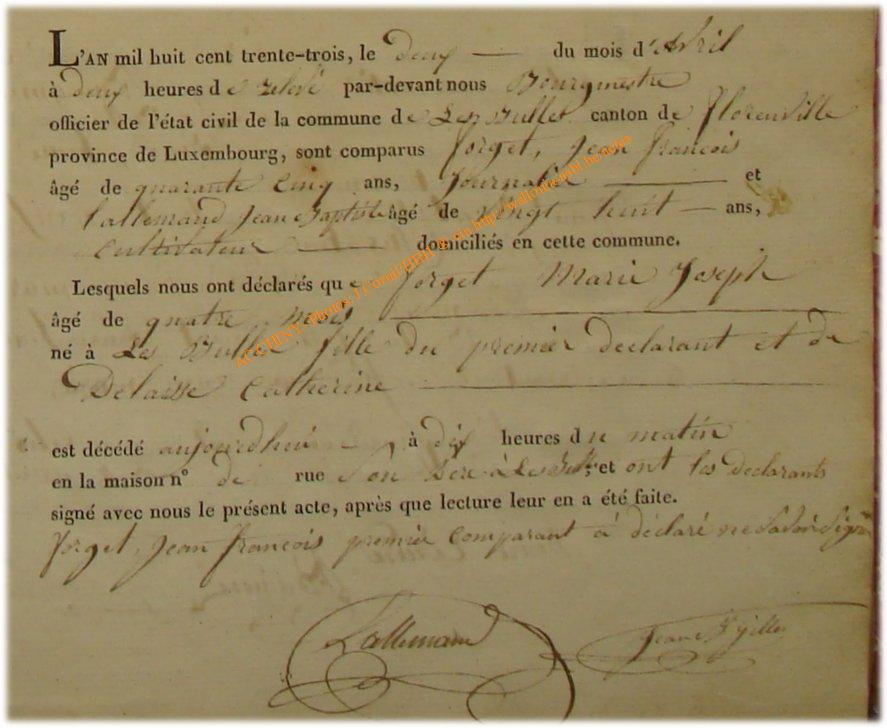 L'AN mil huit cent trente-trois, le deux du mois d'Avril
à deux heures de relevé par-devant nous Bourgmestre
officier de l'état civil de la commune de Les Bulles canton de florenville
province de Luxembourg, sont comparus forget, Jean francois
âgé de quarante cinq ans, Journalier et
lallemand Jean Baptiste âgé de vingt huit ans,
cultivateur domiciliés en cette commune.
Lesquels nous ont déclarés que forget Marie Joseph
âgé de quatre mois
né à Les Bulles fille du premier declarant et de
Delaisse Catherine
est décédé aujourdhui à dix heures du matin
en la maison n° de rue son père à Les Bulles et ont les declarants
signé avec nous le présent acte, après que lecture leur en a été faite.
forget, Jean francois premier comparant à déclaré ne savoir signer
Lallemand Jean Gilles